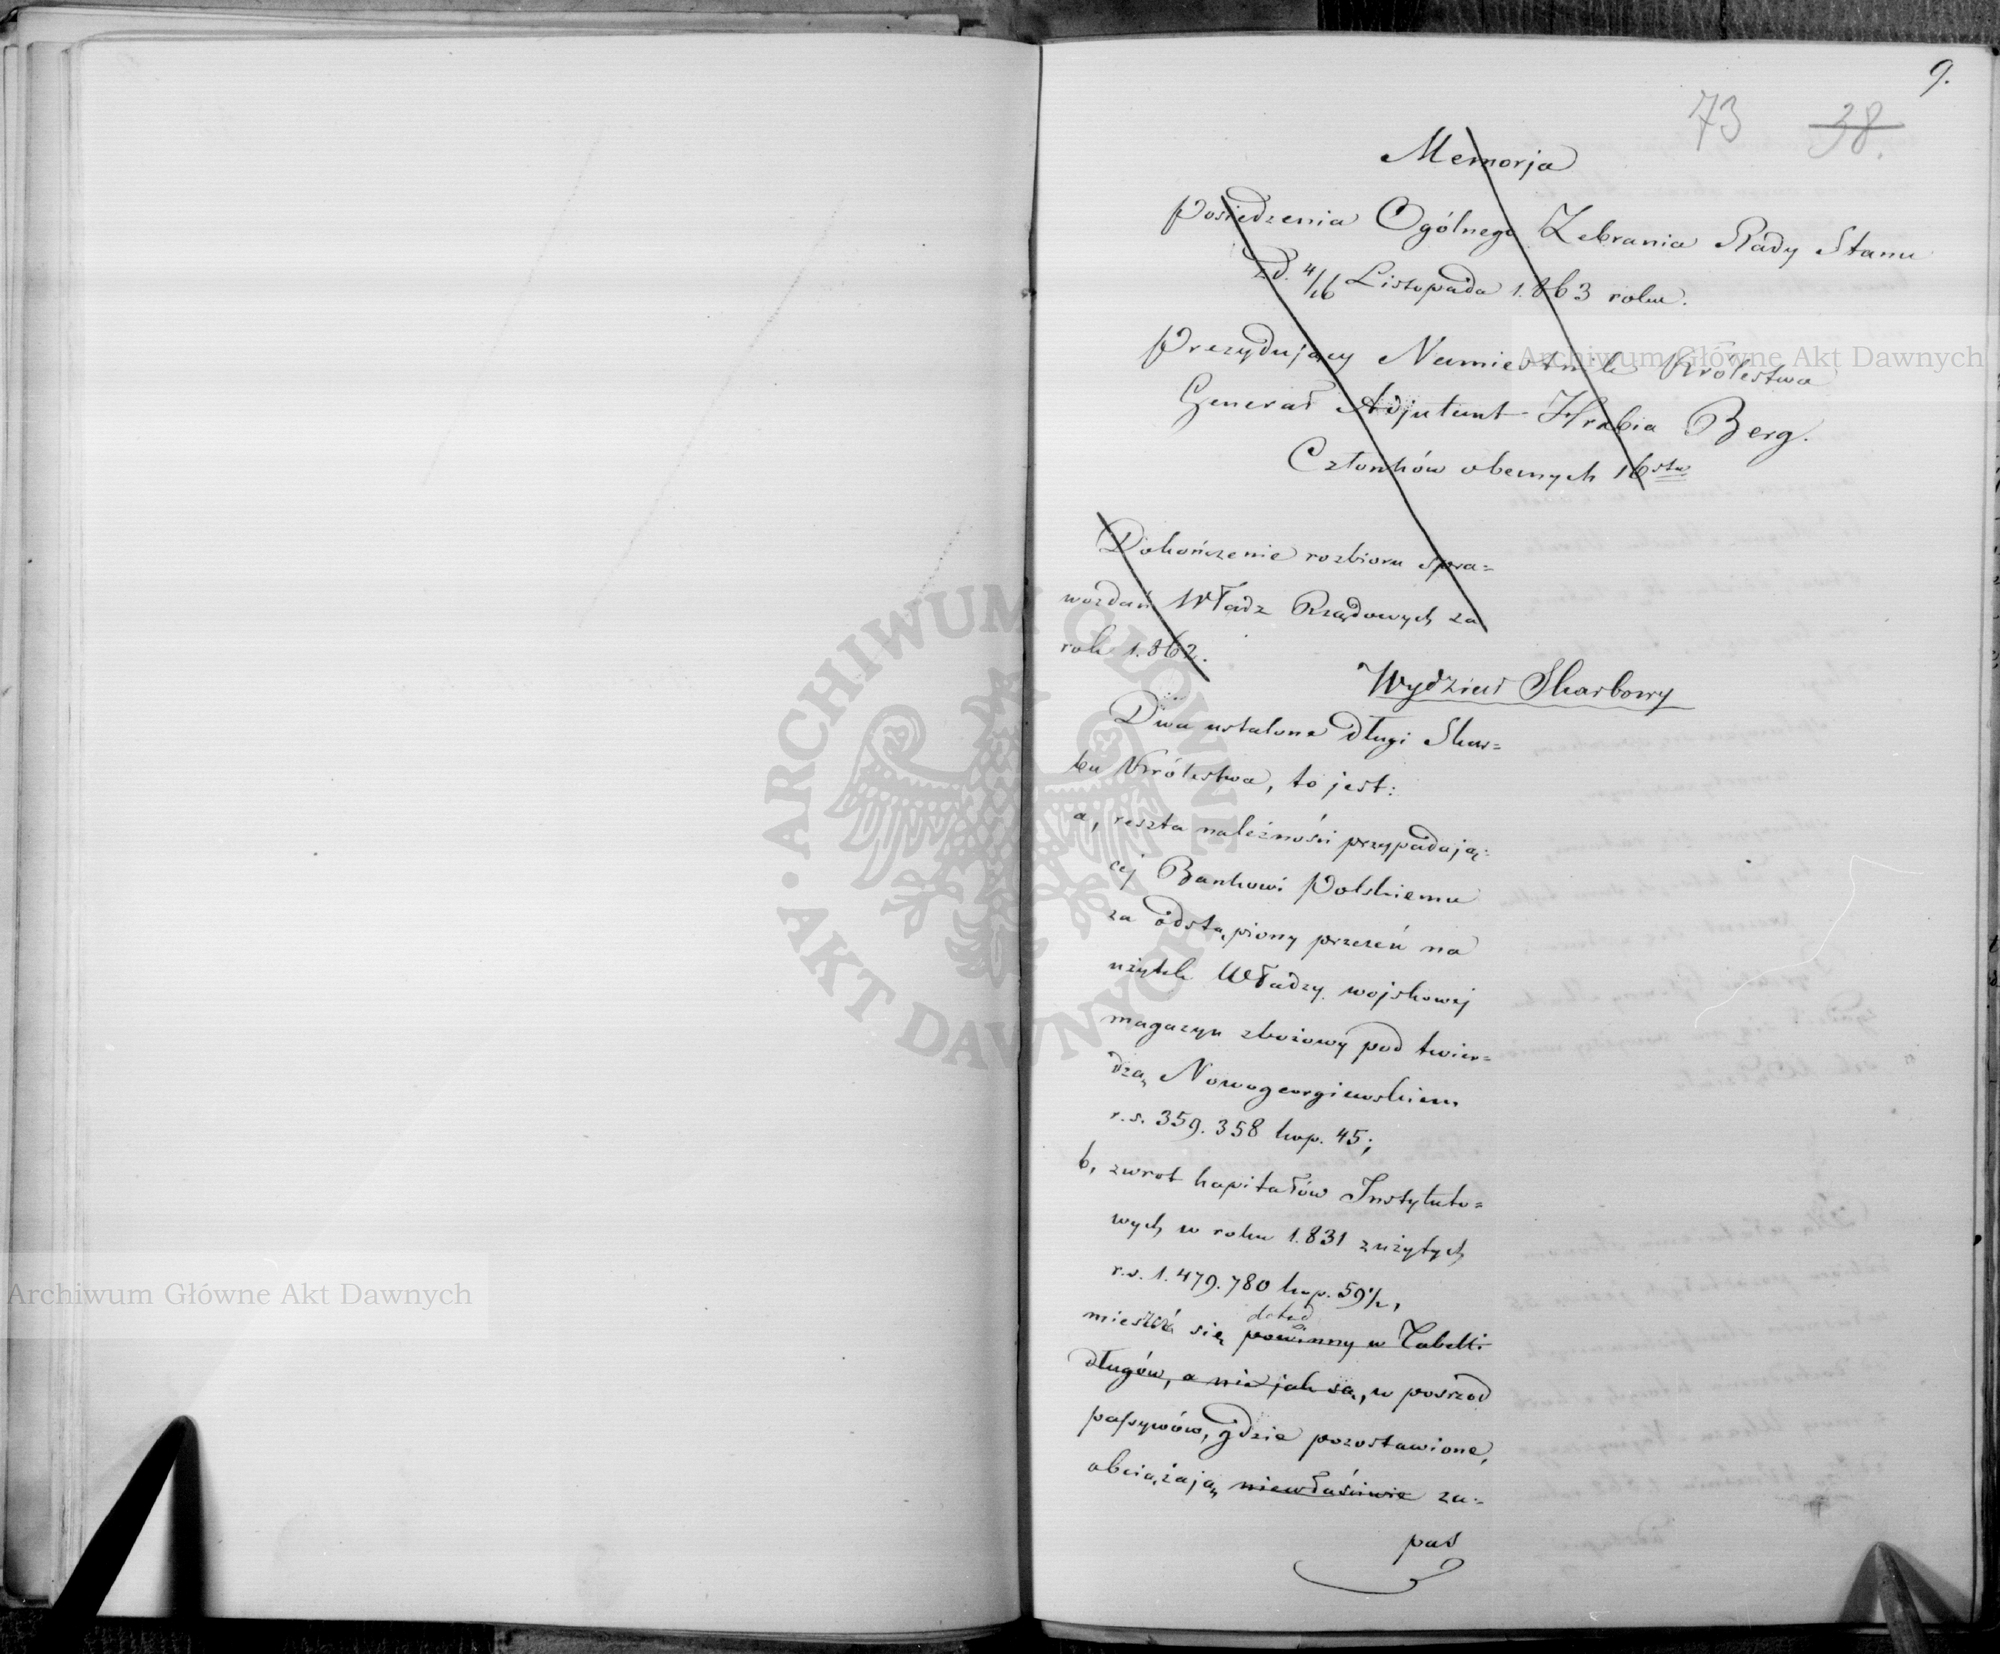 9.
73 38.
Memorja
Posiedzenia Ogólnego Zebrania Rady Stanu
z d. 4/16 Listopada 1.863 roku.
Prezydujący Namiestnik Królestwa
Generał Adjutant Hrabia Berg.
Członków obecnych 16stu
Dokończenie rozbioru spra=
wozdań Władz Rządowych za
rok 1.862.
Wydział Skarbowy
Dwa ustalone długi Skar=
bu Królestwa, to jest:
a, reszta należności przypadają=
cej Bankowi Polskiemu
za odstąpiony przezeń na
użytek Władzy wojskowej
magazyn zbożowy pod twier=
dzą Nowogeorgiewskiem
r.s. 359.358 kop. 45;
b, zwrot kapitałów Instytuto=
wych w roku 1.831 zużytych
r.s. 1.479.780 kop. 59½,
dotąd
mieszczą się powinny w Tabelli
długów, a nie jak są, w pośrzód
passywów, gdzie pozostawione,
obciążają niewłaściwie za=
pas
Archiwum Główne Akt Dawnych
Archiwum Główne Akt Dawnych
ARCHIWUM GŁÓWNE
AKT DAWNYCH